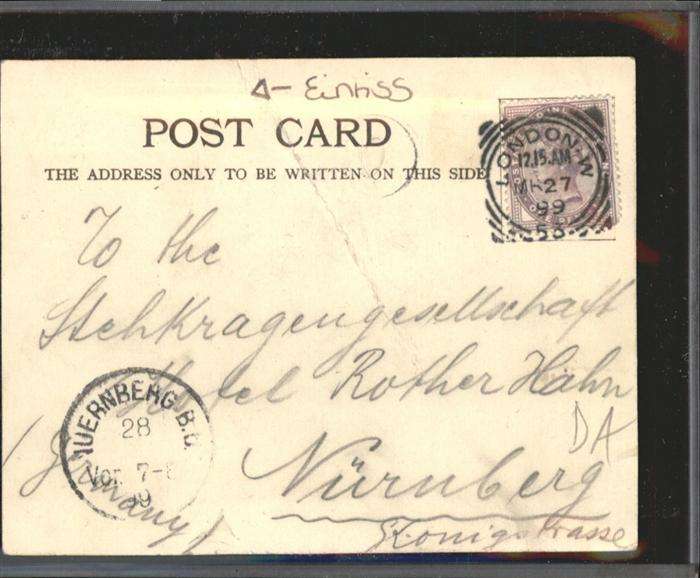 ◁– Einriss
POST CARD
THE ADDRESS ONLY TO BE WRITTEN ON THIS SIDE
LONDON·W
12.15.AM
MR 27
99
53
To the
Stehkragengesellschaft
Hotel Rother Hahn
DA
Nürnberg
(Germany)
Königstrasse
NUERNBERG B.
28
7-
99